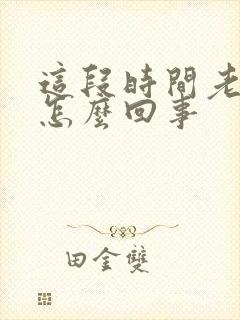 這段時間老
怎麼回事
田金雙